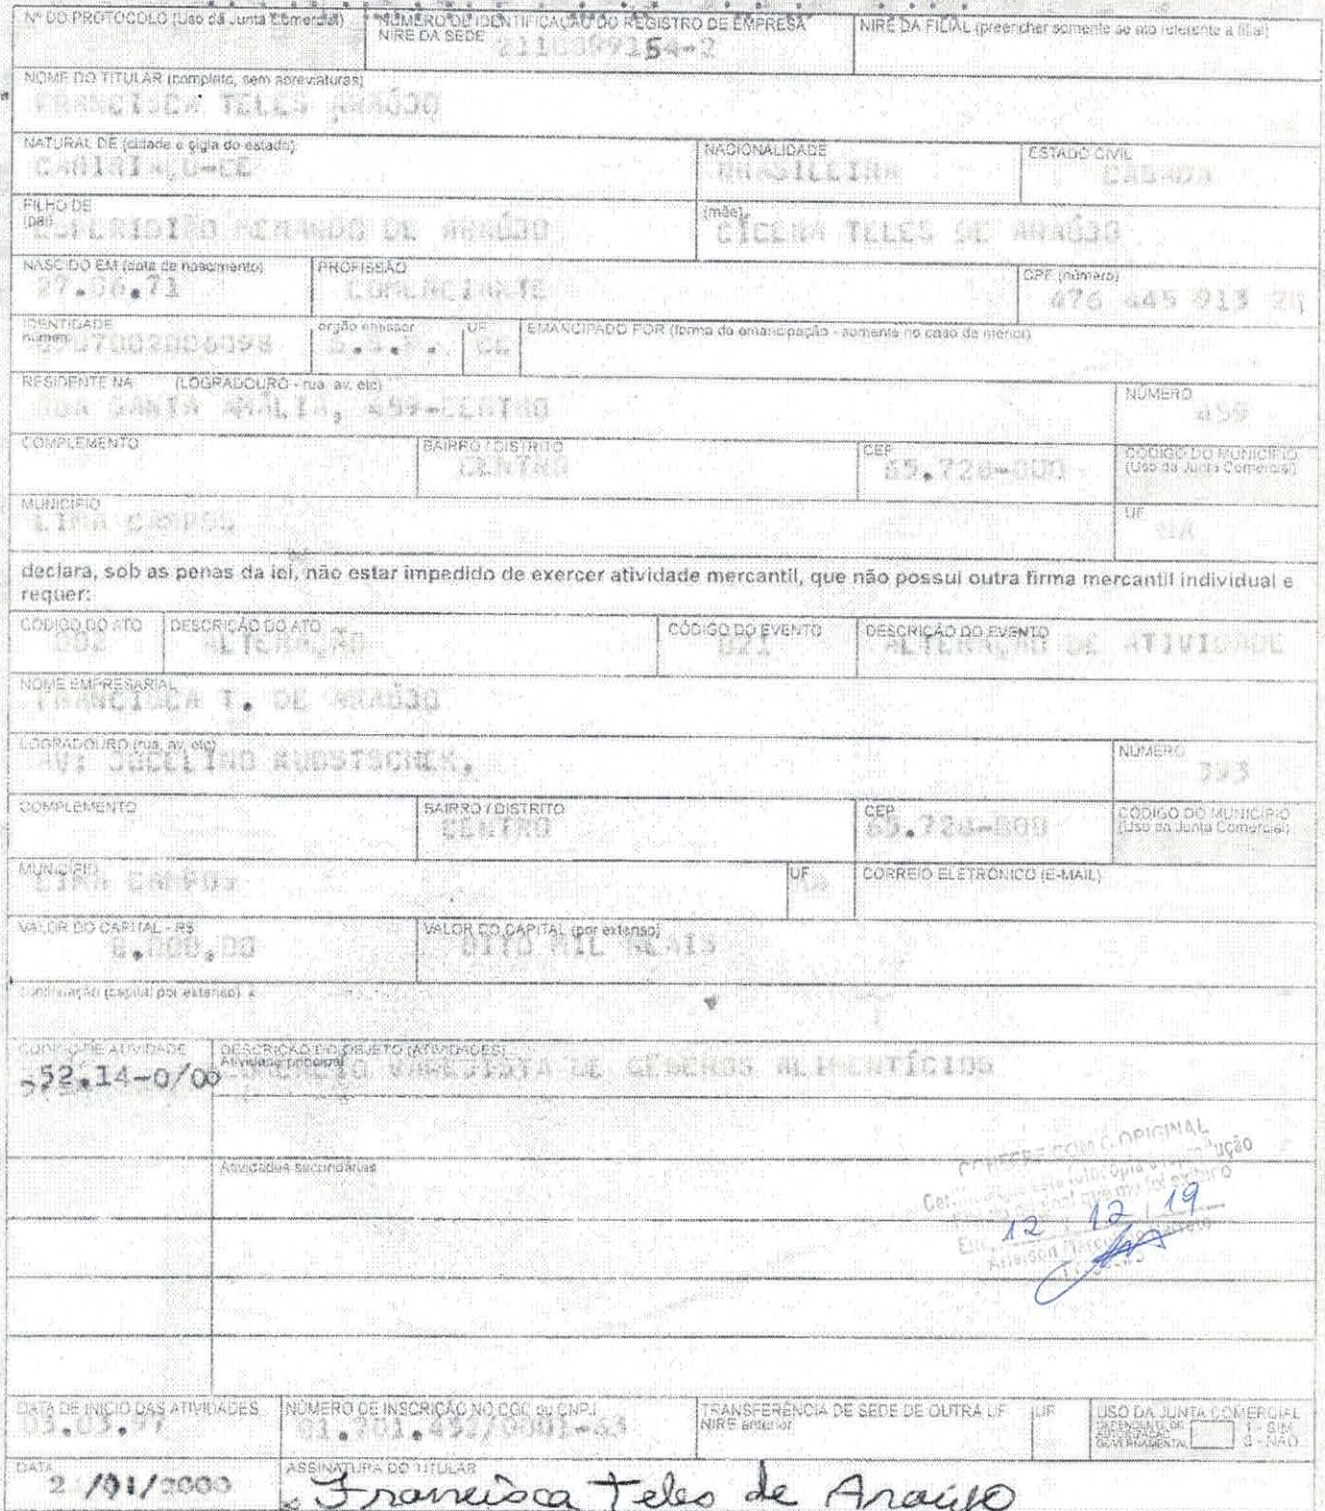 Nº DO PROTOCOLO (Uso da Junta Comercial)
NÚMERO DE IDENTIFICAÇÃO DO REGISTRO DE EMPRESA
NIRE DA SEDE
NIRE DA FILIAL (preencher somente se ato referente a filial)
NOME DO TITULAR (completo, sem abreviaturas)
FRANCISCA TELES ARAÚJO
NATURAL DE (cidade e sigla do estado)
NACIONALIDADE
BRASILEIRA
ESTADO CIVIL
CASADA
FILHO DE
(pai)
DE ARAÚJO
(mãe)
CÍCERA TELES DE ARAÚJO
NASCIDO EM (data de nascimento)
27.06.71
PROFISSÃO
COMERCIANTE
CPF (número)
476 445 913
IDENTIDADE
número
órgão emissor
UF
CE
EMANCIPADO POR (forma de emancipação - somente no caso de menor)
RESIDENTE NA (LOGRADOURO - rua, av, etc)
RUA SANTA AMÁLIA, 459-CENTRO
NÚMERO
459
COMPLEMENTO
BAIRRO / DISTRITO
CENTRO
CEP
65.728-000
CÓDIGO DO MUNICÍPIO
(Uso da Junta Comercial)
MUNICÍPIO
LIMA CAMPOS
UF
MA
declara, sob as penas da lei, não estar impedido de exercer atividade mercantil, que não possui outra firma mercantil individual e
requer:
CÓDIGO DO ATO
002
DESCRIÇÃO DO ATO
ALTERAÇÃO
CÓDIGO DO EVENTO
021
DESCRIÇÃO DO EVENTO
ALTERAÇÃO DE ATIVIDADE
NOME EMPRESARIAL
FRANCISCA T. DE ARAÚJO
LOGRADOURO (rua, av, etc)
AV: JUCELINO KUBSTSCHEK,
NÚMERO
393
COMPLEMENTO
BAIRRO / DISTRITO
CENTRO
CEP
65.728-000
CÓDIGO DO MUNICÍPIO
(Uso da Junta Comercial)
MUNICÍPIO
LIMA CAMPOS
UF
MA
CORREIO ELETRÔNICO (E-MAIL)
VALOR DO CAPITAL - R$
8.000,00
VALOR DO CAPITAL (por extenso)
OITO MIL REAIS
continuação (capital por extenso)
CÓDIGO DE ATIVIDADE
52.14-0/00
DESCRIÇÃO DO OBJETO (ATIVIDADES)
Atividade principal
COMÉRCIO VAREJISTA DE GÊNEROS ALIMENTÍCIOS
Atividades secundárias
CONFERE COM O ORIGINAL
Em 12 / 12 / 19
DATA DE INÍCIO DAS ATIVIDADES
03.03.97
NÚMERO DE INSCRIÇÃO NO CGC ou CNPJ
TRANSFERÊNCIA DE SEDE DE OUTRA UF
NIRE anterior
UF
USO DA JUNTA COMERCIAL
DEPENDENTE DE
AUTORIZAÇÃO
GOVERNAMENTAL
1 - SIM
3 - NÃO
DATA
/01/2000
ASSINATURA DO TITULAR
Francisca Teles de Araújo